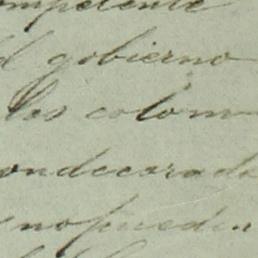 ompetente
el gobierno
los colom
ondecorado
no pueden